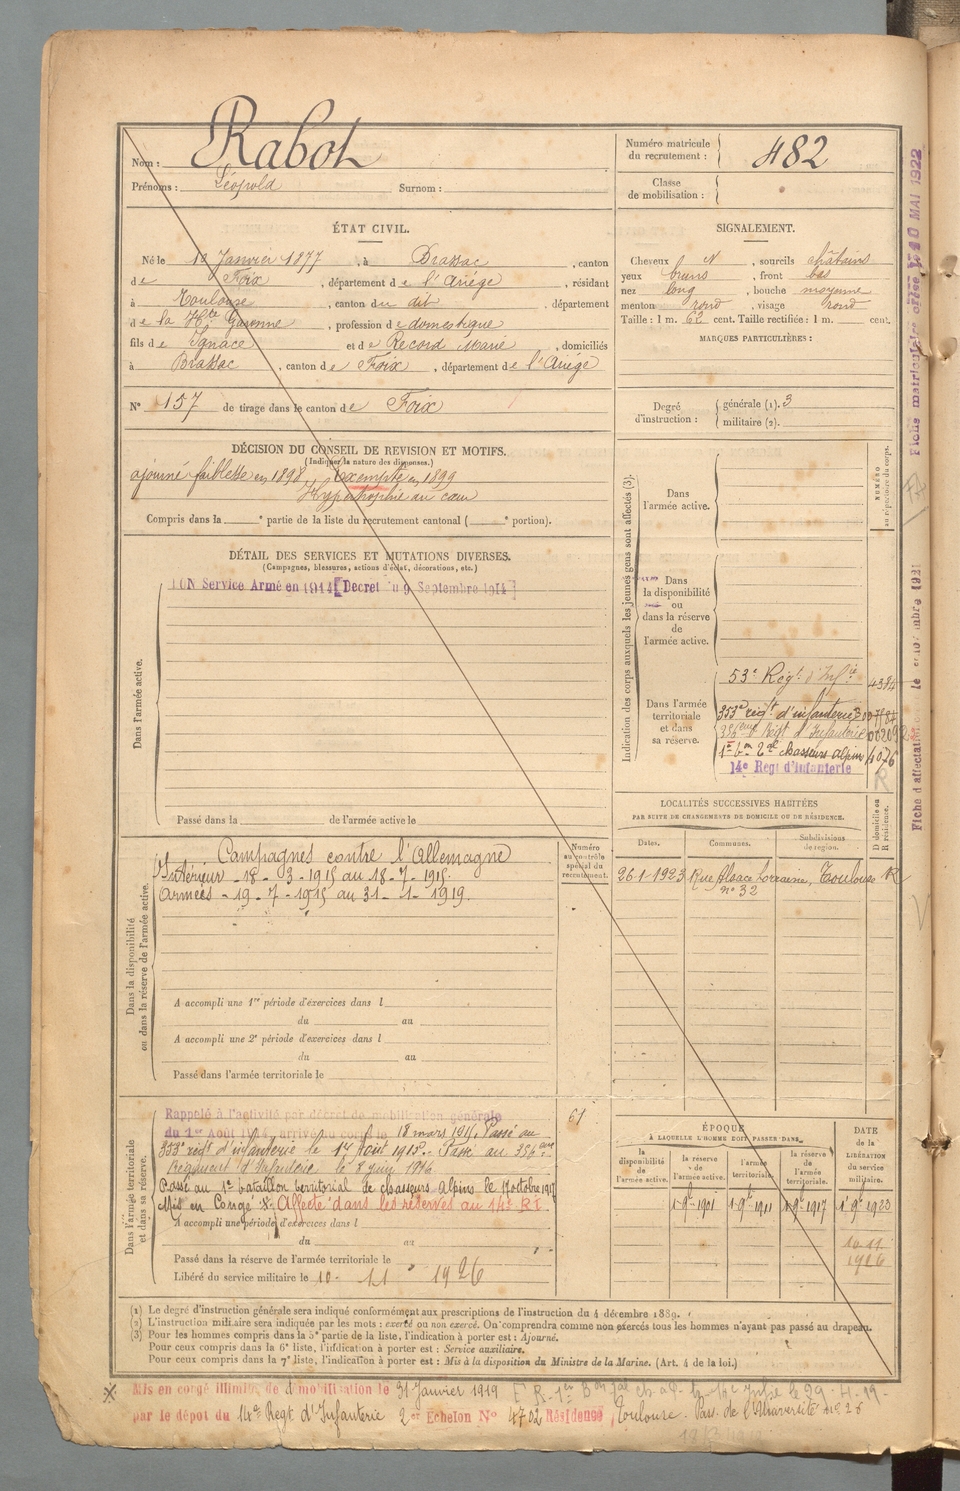 Nom : Rabot
Prénoms : Léopold Surnom :
Numéro matricule du recrutement : 482
Classe de mobilisation :
ÉTAT CIVIL.
Né le 10 Janvier 1877, à Brassac, canton
de Foix, département de l'Ariége, résidant
à Toulouse, canton du dit, département
de la Hte Garonne, profession de domestique
fils de Ignace et de Record Marie, domiciliés
à Brassac, canton de Foix, département de l'Ariége
N° 157 de tirage dans le canton de Foix
SIGNALEMENT.
Cheveux N, sourcils châtains
yeux bruns, front bas
nez long, bouche moyenne
menton rond, visage rond
Taille : 1 m. 62 cent. Taille rectifiée : 1 m. cent.
MARQUES PARTICULIÈRES :
Degré d'instruction : générale (1). 3
militaire (2).
DÉCISION DU CONSEIL DE REVISION ET MOTIFS.
(Indiquer la nature des dispenses.)
ajourné faiblesse en 1898 exempté en 1899
Hypertrophie au cœur
Compris dans la e partie de la liste du recrutement cantonal ( e portion).
DÉTAIL DES SERVICES ET MUTATIONS DIVERSES.
(Campagnes, blessures, actions d'éclat, décorations, etc.)
BON Service Armé en 1914 [Decret du 9 Septembre 1914]
Dans l'armée active.
Passé dans la de l'armée active le
Indication des corps auxquels les jeunes gens sont affectés (3).
NUMÉRO au répertoire du corps.
Dans l'armée active.
Dans la disponibilité ou dans la réserve de l'armée active.
Dans l'armée territoriale et dans sa réserve.
53e Régt d'Infie
353e régt d'infanterie
356eme Régt d'Infanterie
1er bon tal chasseurs alpin 4076
14e Régt d'Infanterie
R
LOCALITÉS SUCCESSIVES HABITÉES
PAR SUITE DE CHANGEMENTS DE DOMICILE OU DE RÉSIDENCE.
Dates. Communes. Subdivisions de région. D domicile ou R résidence.
26-1-1923 Rue Alsace Lorraine, Toulouse R
n° 32
Dans la disponibilité ou dans la réserve de l'armée active.
Numéro au contrôle spécial du recrutement.
Campagnes contre l'Allemagne
Intérieur - 18 - 3 - 1915 au 18 - 7 - 1915.
Armées - 19 - 7 - 1915 au 31 - 1 - 1919.
A accompli une 1re période d'exercices dans l
du au
A accompli une 2e période d'exercices dans l
du au
Passé dans l'armée territoriale le
Dans l'armée territoriale et dans sa réserve.
Rappelé à l'activité par décret de mobilisation générale
du 1er Août 1914, arrivé au corps le 18 mars 1915. Passé au
353e régt d'infanterie le 1er Août 1915. Passé au 356eme
Régiment d'Infanterie le 8 juin 1916
Passé au 1er bataillon territorial de chasseurs Alpins le 17 octobre 1917
Mis en Congé X. Affecté dans les réserves au 14e RI
A accompli une période d'exercices dans l
du au
Passé dans la réserve de l'armée territoriale le
Libéré du service militaire le 10 - 11 1926
61
ÉPOQUE
À LAQUELLE L'HOMME DOIT PASSER DANS
la disponibilité de l'armée active. la réserve de l'armée active. l'armée territoriale. la réserve de l'armée territoriale.
DATE de la LIBÉRATION du service militaire.
1 9e 1901 1 9e 1911 1 9e 1917 1 9e 1923
10-11
1926
(1) Le degré d'instruction générale sera indiqué conformément aux prescriptions de l'instruction du 4 décembre 1889.
(2) L'instruction militaire sera indiquée par les mots : exercé ou non exercé. On comprendra comme non exercés tous les hommes n'ayant pas passé au drapeau.
(3) Pour les hommes compris dans la 5e partie de la liste, l'indication à porter est : Ajourné.
Pour ceux compris dans la 6e liste, l'indication à porter est : Service auxiliaire.
Pour ceux compris dans la 7e liste, l'indication à porter est : Mis à la disposition du Ministre de la Marine. (Art. 4 de la loi.)
X Mis en congé illimité de démobilisation le 31 Janvier 1919
par le dépot du 14e Régt d'Infanterie 2e Echelon N° 4702 Résidence Toulouse
Fiche matriculaire
MAI 1922
Fiche d'affectation
1921